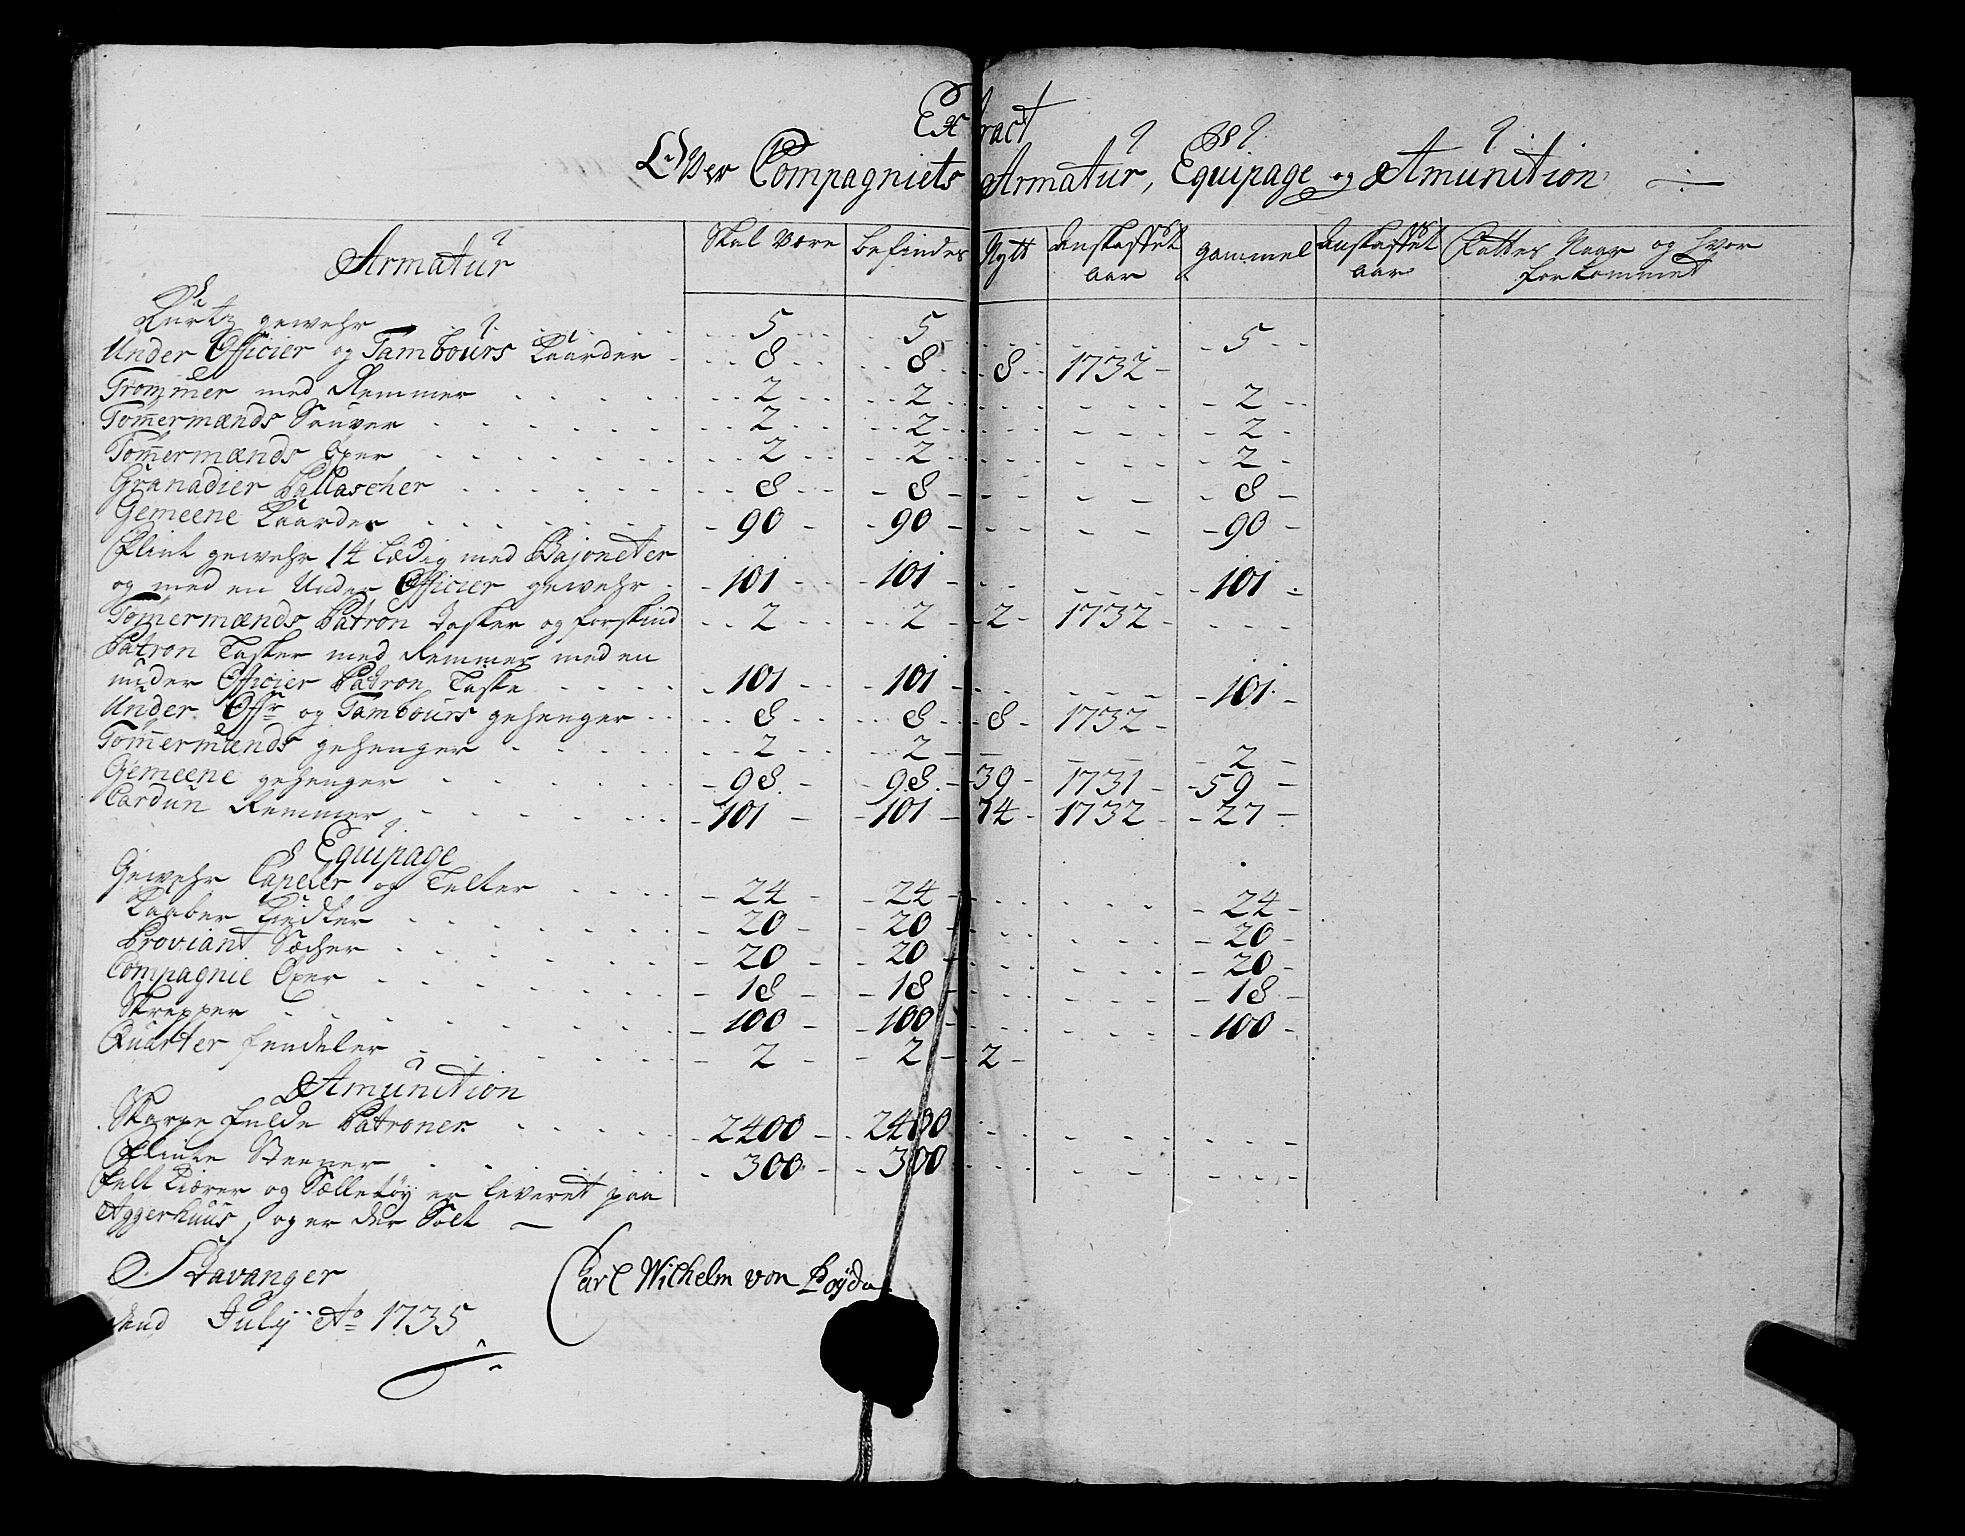 Extract
Over Compagniets Armatur, Equipage og Amunition
Armatur | Skal være | befindes | Nytt | anskaffet aar | gammel | anskaffet aar | Fattes Naar og hvor forkommet
Kurtz gewehr 5 5 5
Under Officier og Tambours Kaarder 8 8 8 1732
Trommer med Remmer 2 2 2
Tom̄ermænds Sauver 2 2 2
Tom̄ermænds Øxer 2 2 2
Granadier Pallascher 8 8 8
Gemeene Kaarder 90 90 90
Flint gewehr 14 lædig med Bajoneter
og med en Under Officier gewehr 101 101 101
Tom̄ermænds Patron Tasker og forskind 2 2 2 1732
Patron Tasker med Remmer med en
under Officier Patron Taske 101 101 101
Under Offr og Tambours gehenger 8 8 8 1732
Tom̄ermænds gehenger 2 2 2
Gemeene gehenger 98 98 39 1731 59
Cardun Remmer 101 101 74 1732 27
Equipage
Gewehr og Telter 24 24 24
Kaaber Kiedler 20 20 20
Proviant Sæcher 20 20 20
Compagnie Øxer 18 18 18
Skrepper 100 100 100
Quarter fendeler 2 2 2
Amunition
Skarpe fulde Patroner 2400 2400
Flinte Steener 300 300
Felt Kiærer og Sælletøy er leveret paa
Aggerhuus, og er der Solt
Stavanger
July Ao 1735
Carl Wilhelm von